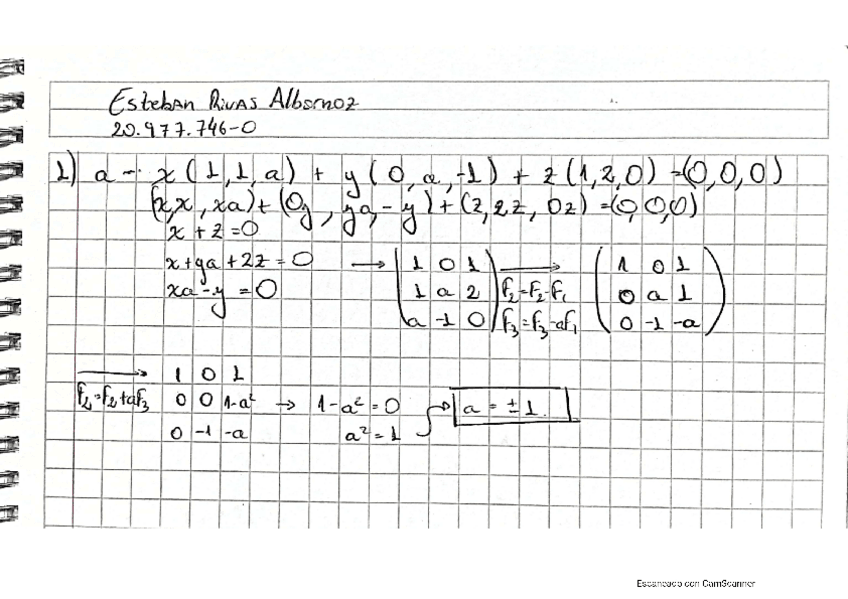 Esteban Rivas Albornoz
20.977.746-0
1) a - x(1,1,a) + y(0,a,-1) + z(1,2,0) = (0,0,0)
(x,x,xa) + (0y, ya, -y) + (z,2z,0z) = (0,0,0)
x + z = 0
x + ya + 2z = 0 → (1 0 1 → (1 0 1
xa - y = 0 1 a 2 F₂=F₂-F₁ 0 a 1
a -1 0) F₃=F₃-aF₁ 0 -1 -a)
→ 1 0 1
F₂=F₂+aF₃ 0 0 1-a² → 1-a² = 0 → a = ±1
0 -1 -a a² = 1
Escaneado con CamScanner